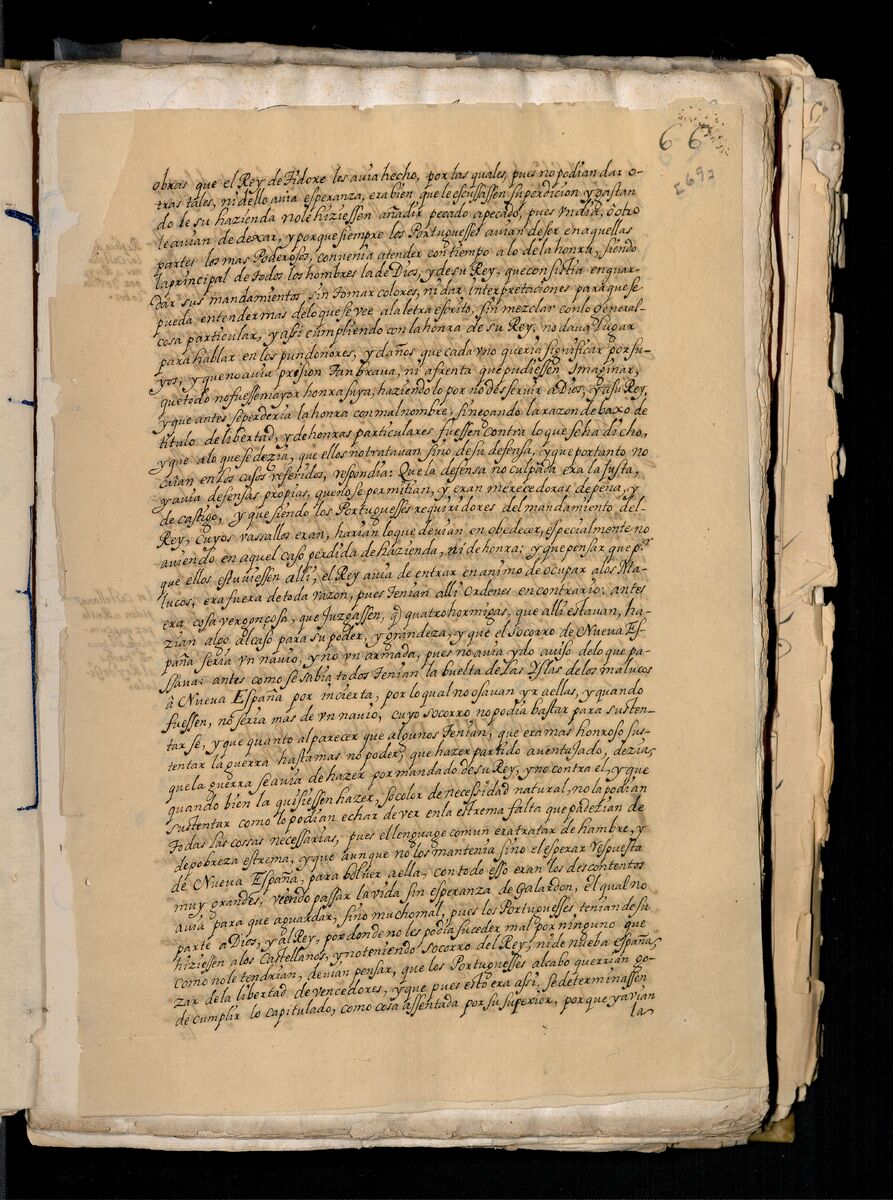 66
2697
obras que el Rey de Tidore les avia hecho, por las quales, pues no podian dar o-
tras tales, ni dello avia esperanza, era bien que le escusassen su perdicion y gastan
dole su hazienda no le hiziessen añadir pecado a pecado, pues vn dia, ò otro
le avian de dexar, y porque siempre los Portuguesses avian de ser en aquellas
partes los mas Poderosos, convenia atender con tiempo a lo de la honra, siendo
la principal de todos los hombres la de Dios, y de su Rey, que consistia en guar-
dar sus mandamientos sin tomar colores, ni dar interpretaciones para que se
pueda entender mas de lo que se vee a la letra escrito, sin mezclar con lo General
cosa particular, y assi cumpliendo con la honra de su Rey, no dava lugar
para hablar en los pundonores, y daños que cada vno queria significar por su-
yos, y que no avia prision tan brava, ni afrenta que pudiessen Imaginar,
que todo no fuesse mayor honra suya, haziendolo por no desservir a Dios, y a su Rey,
y que antes se perderia la honra con mal nombre, si negando la razon debaxo de
titulo de libertad, y de honras particulares fuessen contra lo que se ha dicho,
y que a lo que se dezia, que ellos no tratavan sino de su defensa, y que portanto no
caian en los casos referidos, respondia: Que la defensa no culpada era la justa,
y avia defensas propias, que no se permitian, y eran merecedoras de pena, y
de castigo, y que siendo los Portuguesses requiridores del mandamiento del-
Rey, cuyos vassallos eran, harian lo que devian en obedecer, especialmente no
aviendo en aquel caso perdida de hazienda, ni de honra: y que pensar que pr
que ellos estuviessen alli, el Rey avia de entrar en animo de ocupar a los Ma-
lucos, era fuera de toda razon, pues tenian alli ordenes en contrario: antes
era cosa vergonçosa, que Juzgassen, q̃ quatro hormigas, que alli estavan, ha-
zian algo al caso para su poder, y grandeza, y que el Socorro de Nueva Es-
paña seria vn navio, y no vn armada, pues no avia ydo aviso de lo que pa-
ssava: antes como se sabia todos tenian la buelta de las Yslas de los malucos
à Nueva España por incierta, por lo qual no osavan yr a ellas, y quando
fuessen, no seria mas de vn navio, cuyo socorro no podia bastar para susten-
tarse, y que quanto al parecer que algunos tenian, que era mas honroso sus-
tentar la guerra hasta mas no poder, que hazer partido aventajado, dezia,
que la guerra se avia de hazer por mandado de su Rey, y no contra el, y que
quando bien la quisiessen hazer, so color de necessidad natural, no la podian
sustentar como lo podian echar de ver en la estrema falta que padezian de
todas las cossas necessarias, pues el lenguage comun era tratar de hambre, y
de pobreza estrema, y que aunque no los mantenia sino el esperar respuesta
de Nueva España, para bolver a ella, con todo esso eran los descontentos
muy grandes, viendo passar la vida sin esperanza de Galardon, el qual no
avia para que aguardar, sino mucho mal, pues los Portuguesses tenian de su
parte a Dios, y al Rey, por donde no les podia suceder mal por ninguno que
hiziessen a los Castellanos, y no teniendo socorro del Rey, ni de nueba españa,
como no le tendrian, devian pensar, que los Portuguesses alcabo querrian go-
zar de la libertad de vencedores, y que pues esto era assi, se determinassen
de cumplir lo capitulado, como cosa assentada por su superior, porque ya vian
la